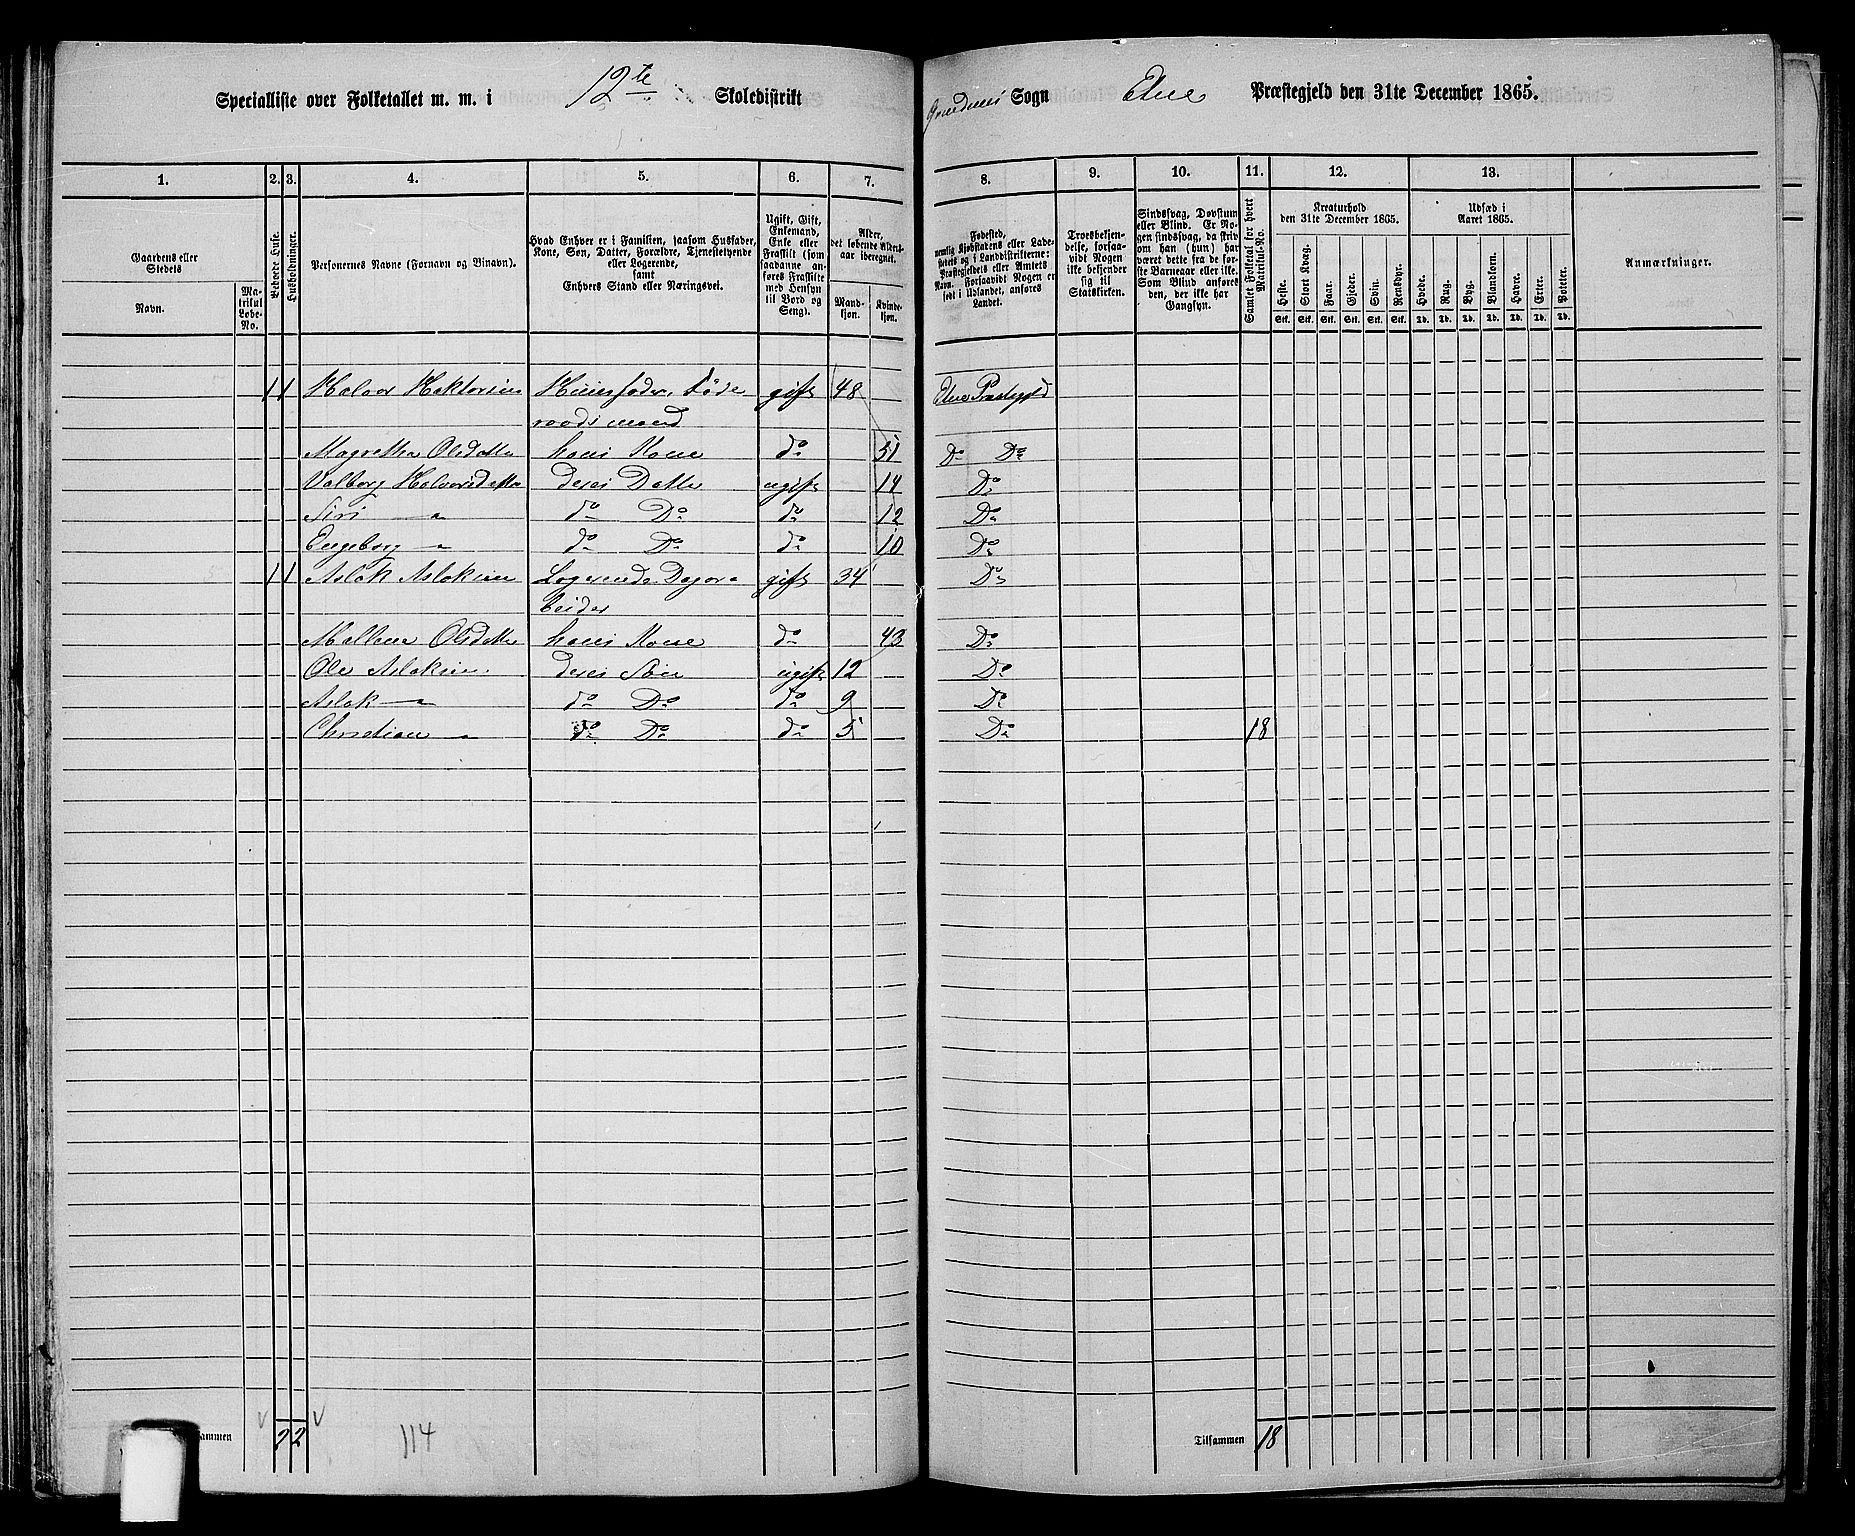 Specialliste over Folketallet m. m. i 12te Skoledistrikt
Sogn Etne Præstegjeld den 31te December 1865.
1. 2. 3. 4. 5. 6. 7. 8. 9. 10. 11. 12. 13.
Gaardens eller Stedets
Navn.
Matrikul Løbe-No.
Beboede Huse.
Husholdninger.
Personernes Navne (Fornavn og Binavn).
Hvad Enhver er i Familien, saasom Husfader, Kone, Søn, Datter, Forældre, Tjenestetyende eller Logerende, samt Enhvers Stand eller Næringsvei.
Ugift, Gift, Enkemand, Enke eller Fraskilt (som saadanne anføres Fraskilte med Hensyn til Bord og Seng).
Alder, det løbende Aldersaar iberegnet.
Mandkjøn.
Kvindekjøn.
Fødested, nemlig Kjøbstadens eller Ladestedets og i Landdistrikterne: Præstegjeldets eller Amtets Navn. Forsaavidt Nogen er født i Udlandet, anføres Landet.
Troesbekjendelse, forsaavidt Nogen ikke bekjender sig til Statskirken.
Sindssvag, Døvstum eller Blind. Er Nogen sindssvag, da skrives om han (hun) har været dette fra de første Barneaar eller ikke. Som Blind anføres den, der ikke har Gangsyn.
Samlet Folketal for hvert Matrikul-No.
Kreaturhold den 31te December 1865.
Heste. Stort Kvæg. Faar. Gjeder. Svin. Rensdyr.
Stk. Stk. Stk. Stk. Stk. Stk.
Udsæd i Aaret 1865.
Hvede. Rug. Byg. Blandkorn. Havre. Erter. Poteter.
Td. Td. Td. Td. Td. Td. Td.
Anmærkninger.
1 1 Halvor Hektorsen Huusfader, Føde gift 48 Etne Præstegjeld
raadsmand
Magretha Olsdatter hans Kone do 51 Do Do
Valborg Halvorsdatter deres Datter ugift 14 Do
Siri — do Do do 12 Do
Engeborg — do Do do 10 Do
1 1 Aslak Aslaksen Logerende Dagar gift 34 Do
beider
Malhena Olsdatter hans Kone do 43 Do
Ole Aslaksen deres Søn ugift 12 Do
Aslak — do Do do 9 Do
Christian — do Do do 5 Do 18
2 2 114 Tilsammen 18